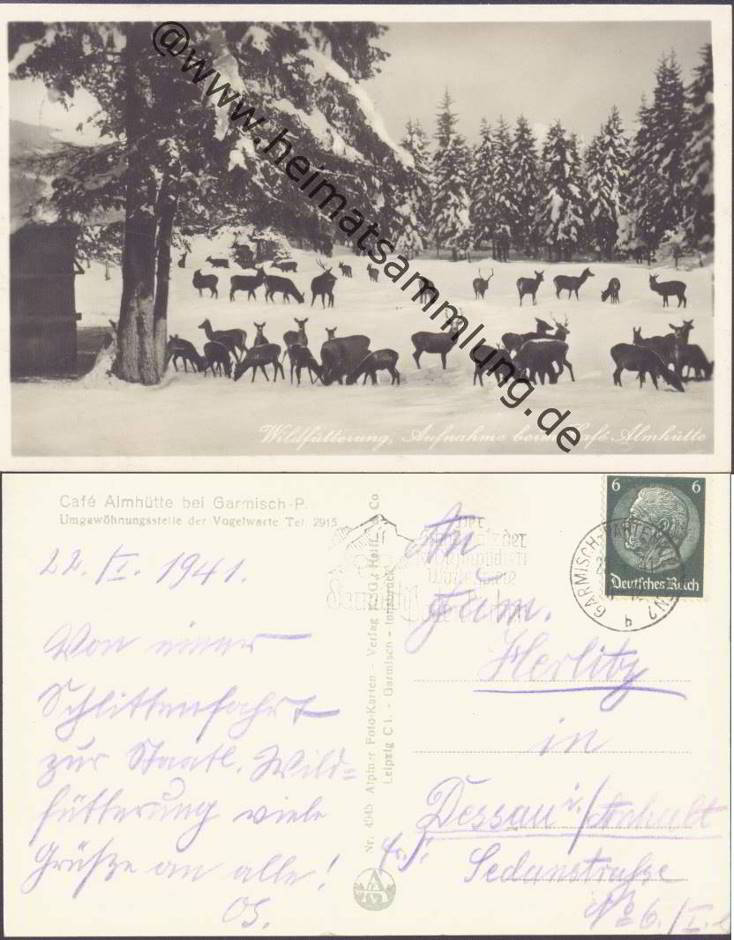 @www.heimatsammlung.de
Wildfütterung, Aufnahme beim Café Almhütte
Café Almhütte bei Garmisch-P.
Umgewöhnungsstelle der Vogelwarte Tel. 2915
22. I. 1941.
Von einer
Schlittenfahrt
zur Staatl. Wild=
fütterung viele
Grüße an alle!
OS.
Nr. 4945 Alpiner Foto-Karten - Verlag K. G.
Leipzig C 1. - Garmisch - Innsbruck
6 6
Deutsches Reich
GARMISCH-PARTENKIRCHEN 2
b
An
Fam.
Herlitz
in
Dessau i/Anhalt
Sedanstraße
No 6. / I.